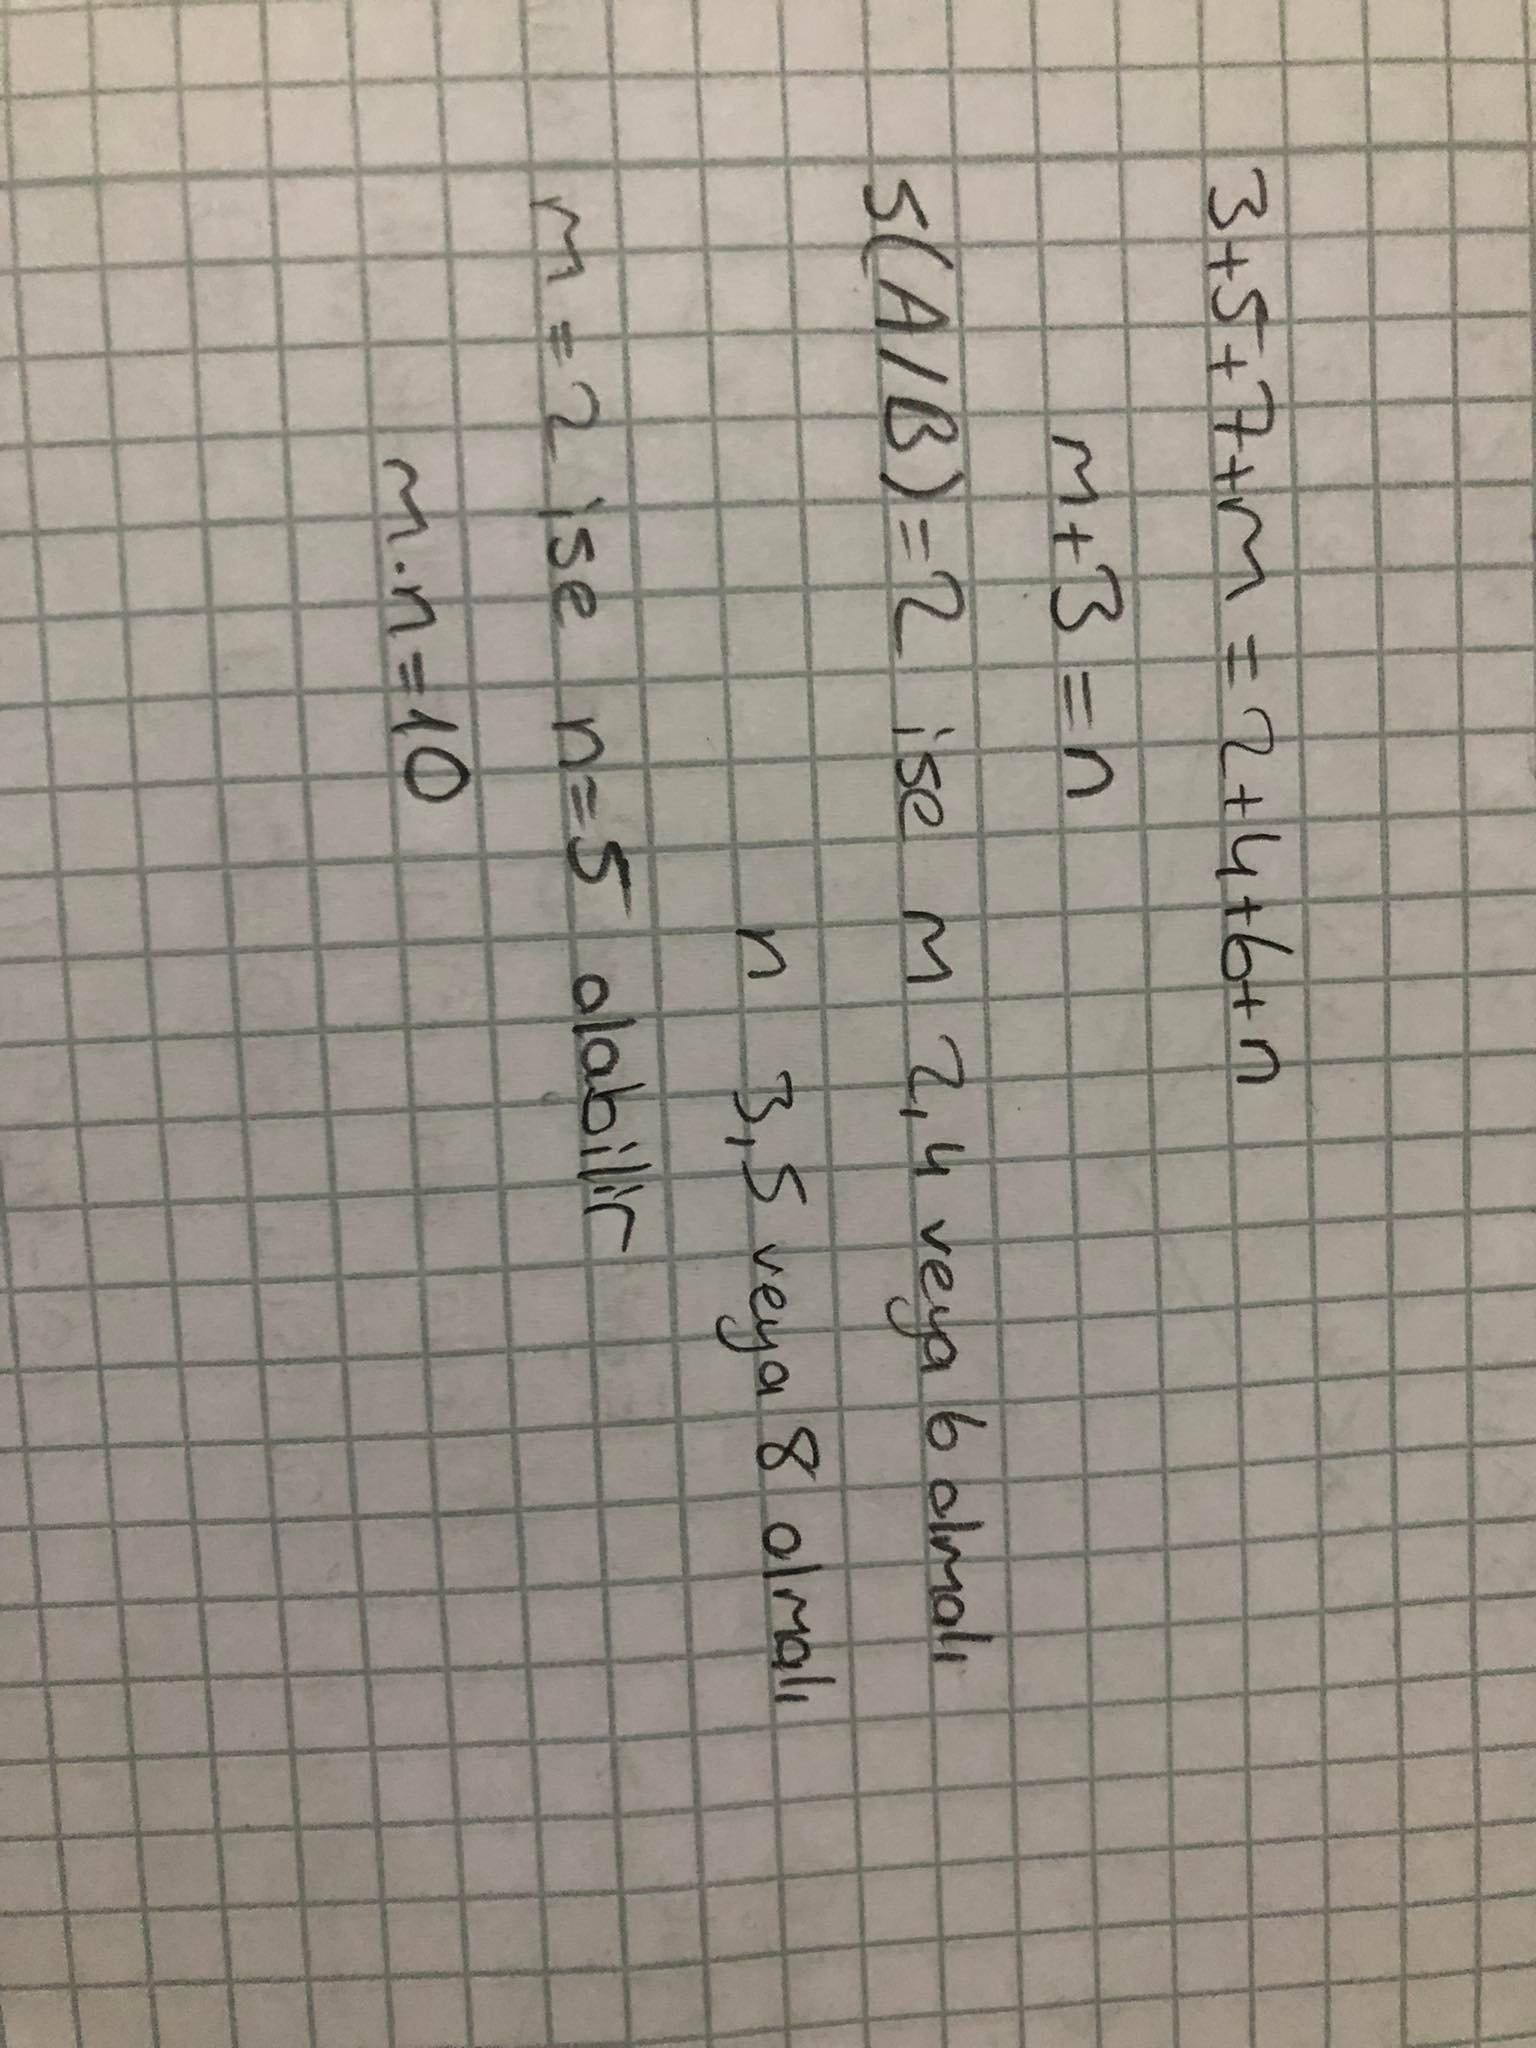 3+5+7+m = 2+4+6+n
m+3=n
s(A/B)=2 ise m 2,4 veya 6 olmalı
n 3,5 veya 8 olmalı
m=2 ise n=5 olabilir
m.n=10